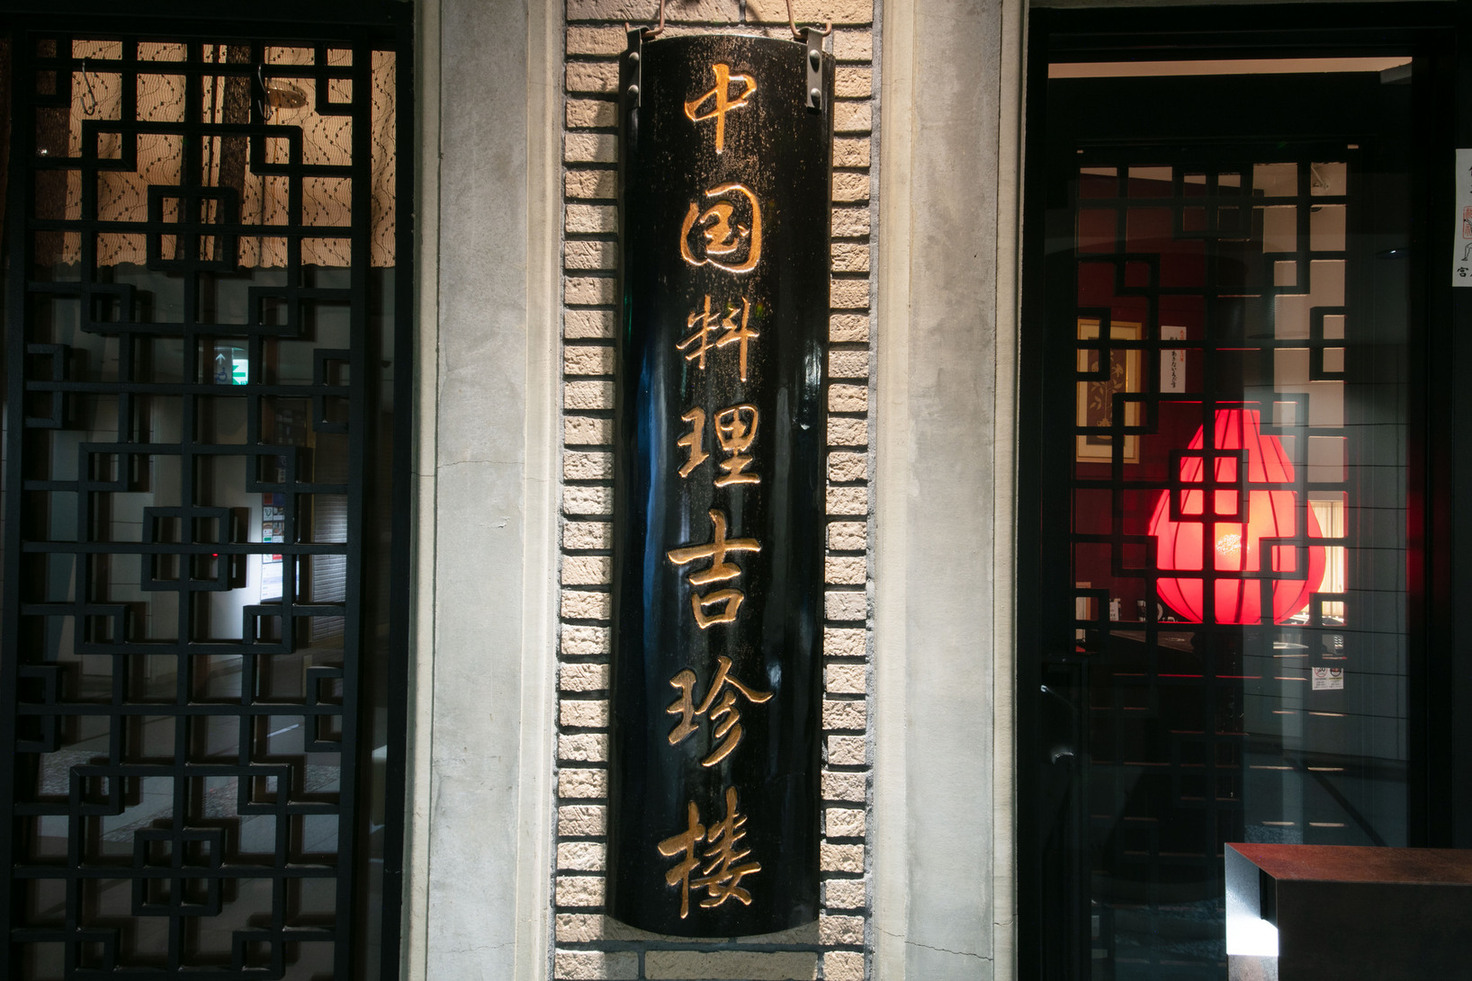 中国料理吉珍楼